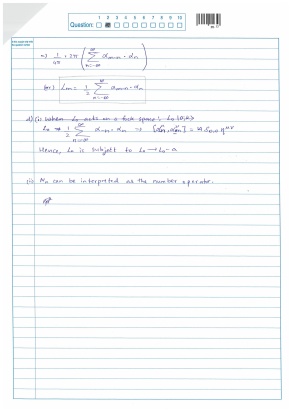 Question: 1 2 3 4 5 6 7 8 9 10
=) 1/4π × 2π ( ∞ Σ n=-∞ αm-n · αn )
for) Lm = 1/2 ∞ Σ n=-∞ αm-n · αn
d) (i) when L₀ acts on a fock space: L₀|0;k⟩
L₀ → 1/2 ∞ Σ n=-∞ α-n · αn
Hence, L₀ is subject to L₀ → L₀ - a
(ii) Nn can be interpreted as the number operator.